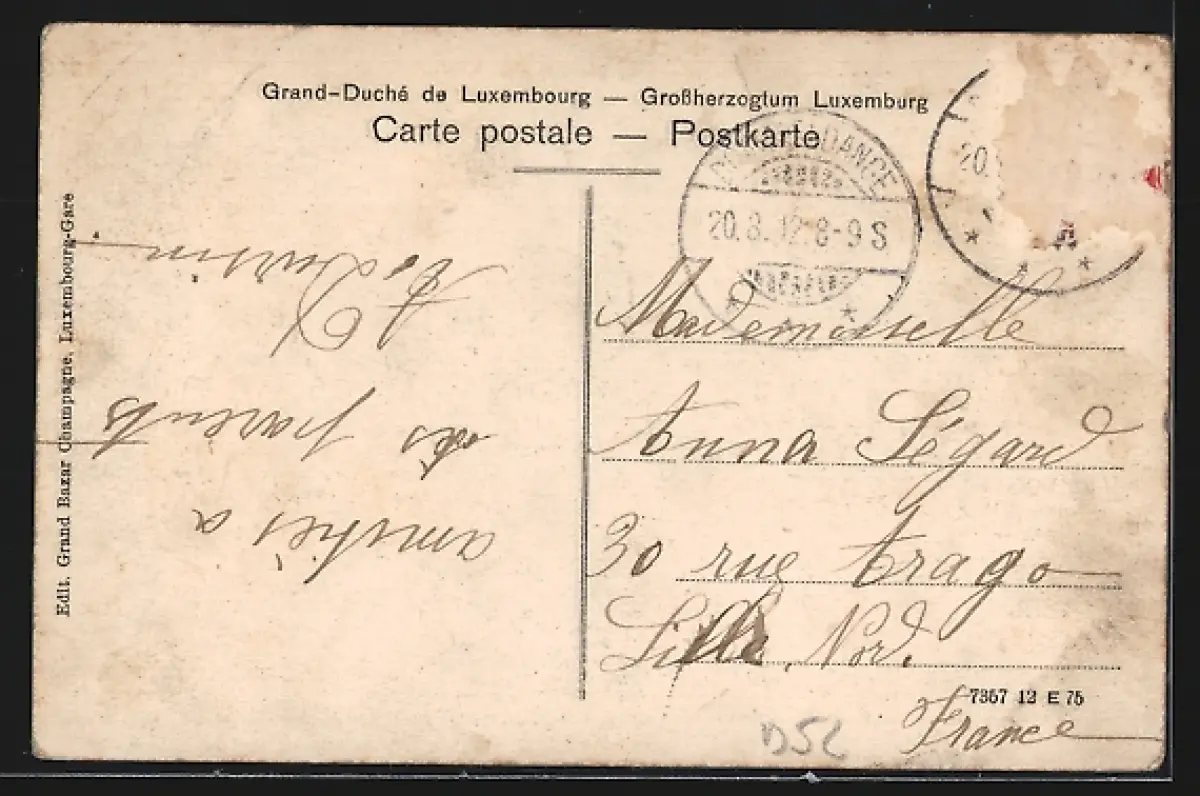 Grand-Duché de Luxembourg — Großherzogtum Luxemburg
Carte postale — Postkarte
20.8.12.8-9 S
20.
Mademoiselle
Anna Ségard
30 rue Arago
Lille, Nord.
France
7367 12 E 75
D52
amitiés a
tes parents
Edit. Grand Bazar Champagne, Luxembourg-Gare